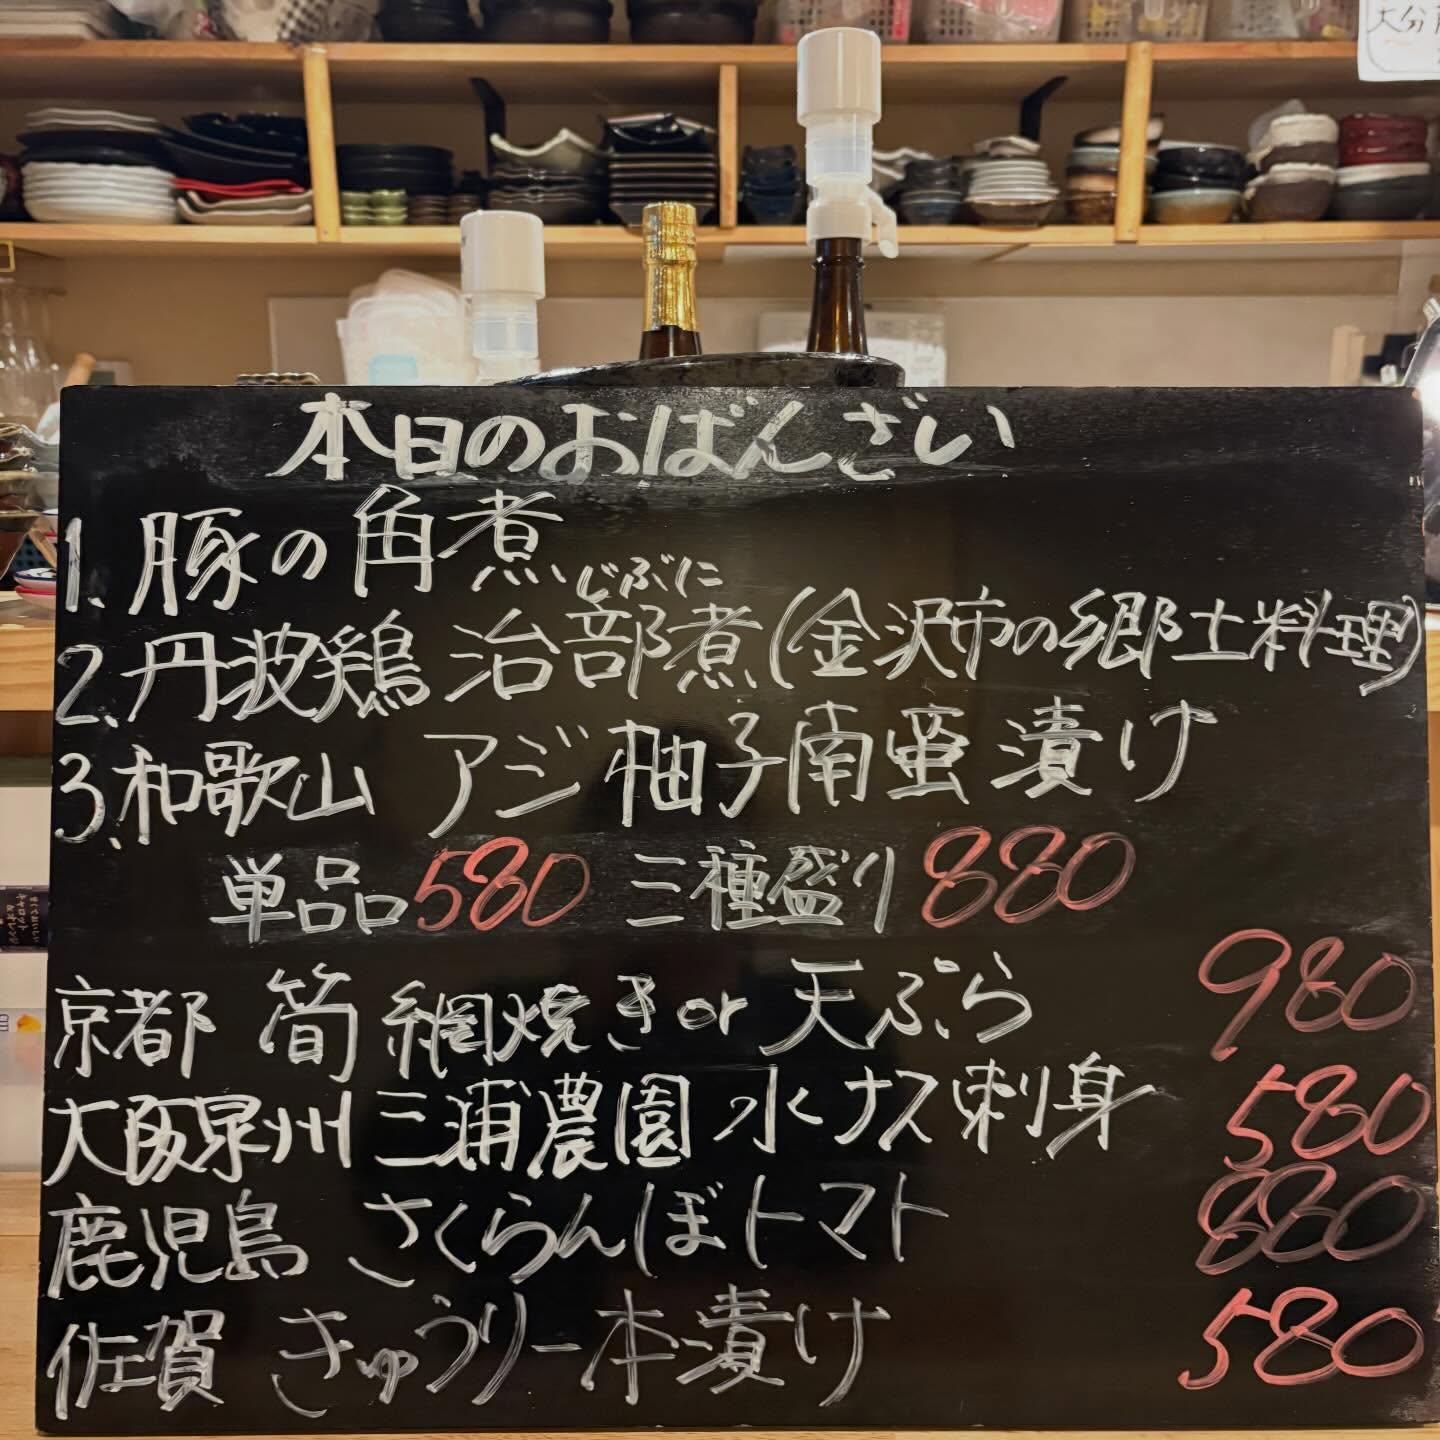 大分
本日のおばんざい
1. 豚の角煮
じぶに
2. 丹波鶏 治部煮(金沢市の郷土料理)
3. 和歌山 アジ柚子南蛮漬け
単品580 三種盛り880
京都 筍 網焼きor天ぷら 980
大阪泉州 三浦農園 水ナス刺身 580
鹿児島 さくらんぼトマト 880
佐賀 きゅうり一本漬け 580